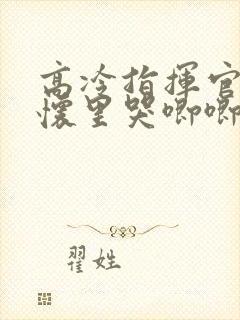 高冷指揮官
懷里哭唧唧
翟姓